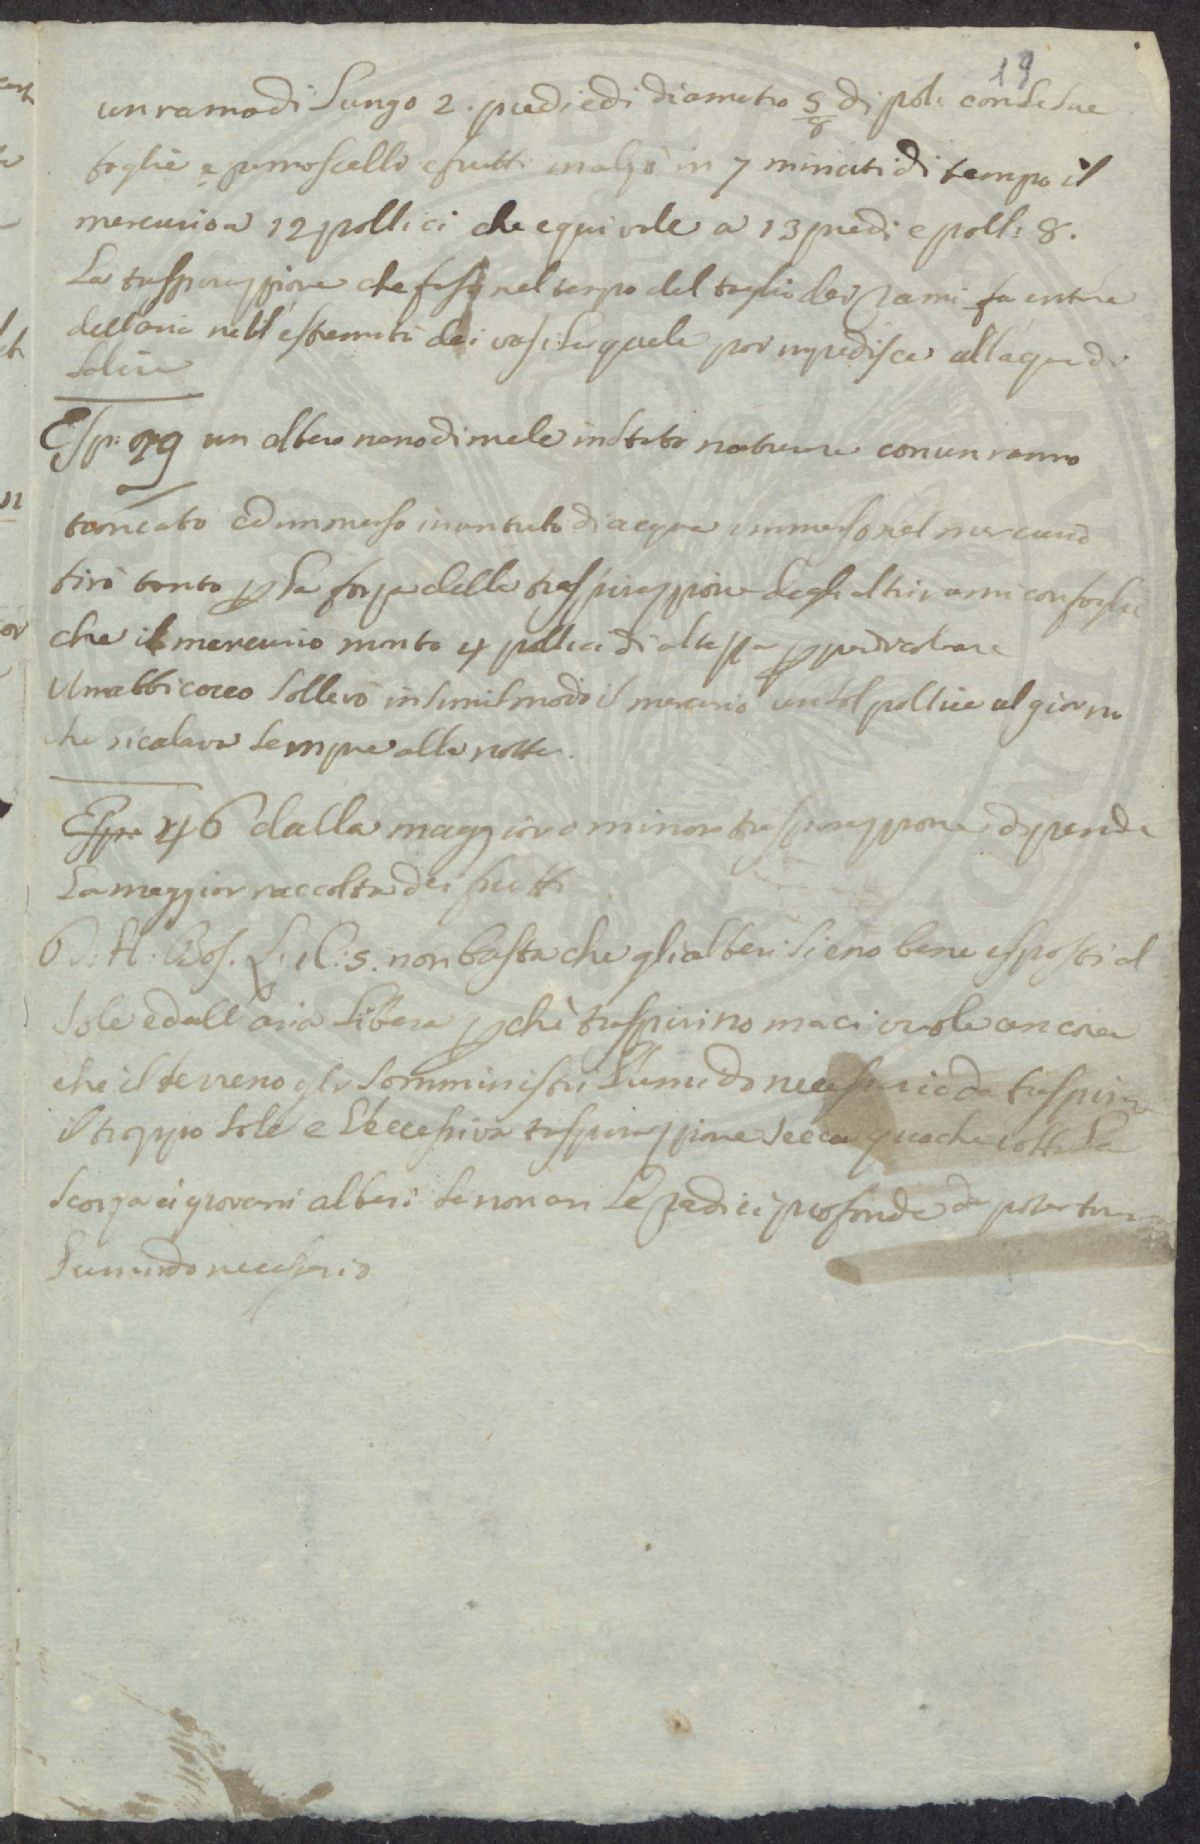 19
un ramo di lungo 2. piedi e di diametro 5/8 di poli: con le sue
foglie e frutti inalzò in 7 minuti di tempo il
mercurio a 12 pollici che equivale a 13 piedi e poll: 8.
La traspirazzione che fassi nel tempo del taglio dei rami fa entrare
dell'aria nell'estremità dei vasi la quale poi impedisce all'aqua di
salire
Esp: 29 un albero nano di mele in stato naturale con un ramo
troncato ed immerso in un tubo di acqua immerso nel mercurio
tirò tanto per la forza della traspirazzione degli altri rami con foglie
che il mercurio montò 4 pollici di altezza perpendicolare
Un albicoco sollevò in simil modo il mercurio un sol pollice al giorno
che ricalava sempre alla notte.
Espe 46 dalla maggior o minore traspirazzione dipende
la maggior raccolta dei frutti
D. H. Bos. L. 1 C: 5. non basta che gli alberi sieno bene esposti al
sole ed all'aria libera perchè traspirino ma ci vuole ancora
che il terreno gli somministri l'umido necessario da traspirare
il troppo sole e l'eccessiva traspirazzione secca qualche volta la
scorza ai giovani alberi se non an le radici profonde da poter tirare
l'umido necessario